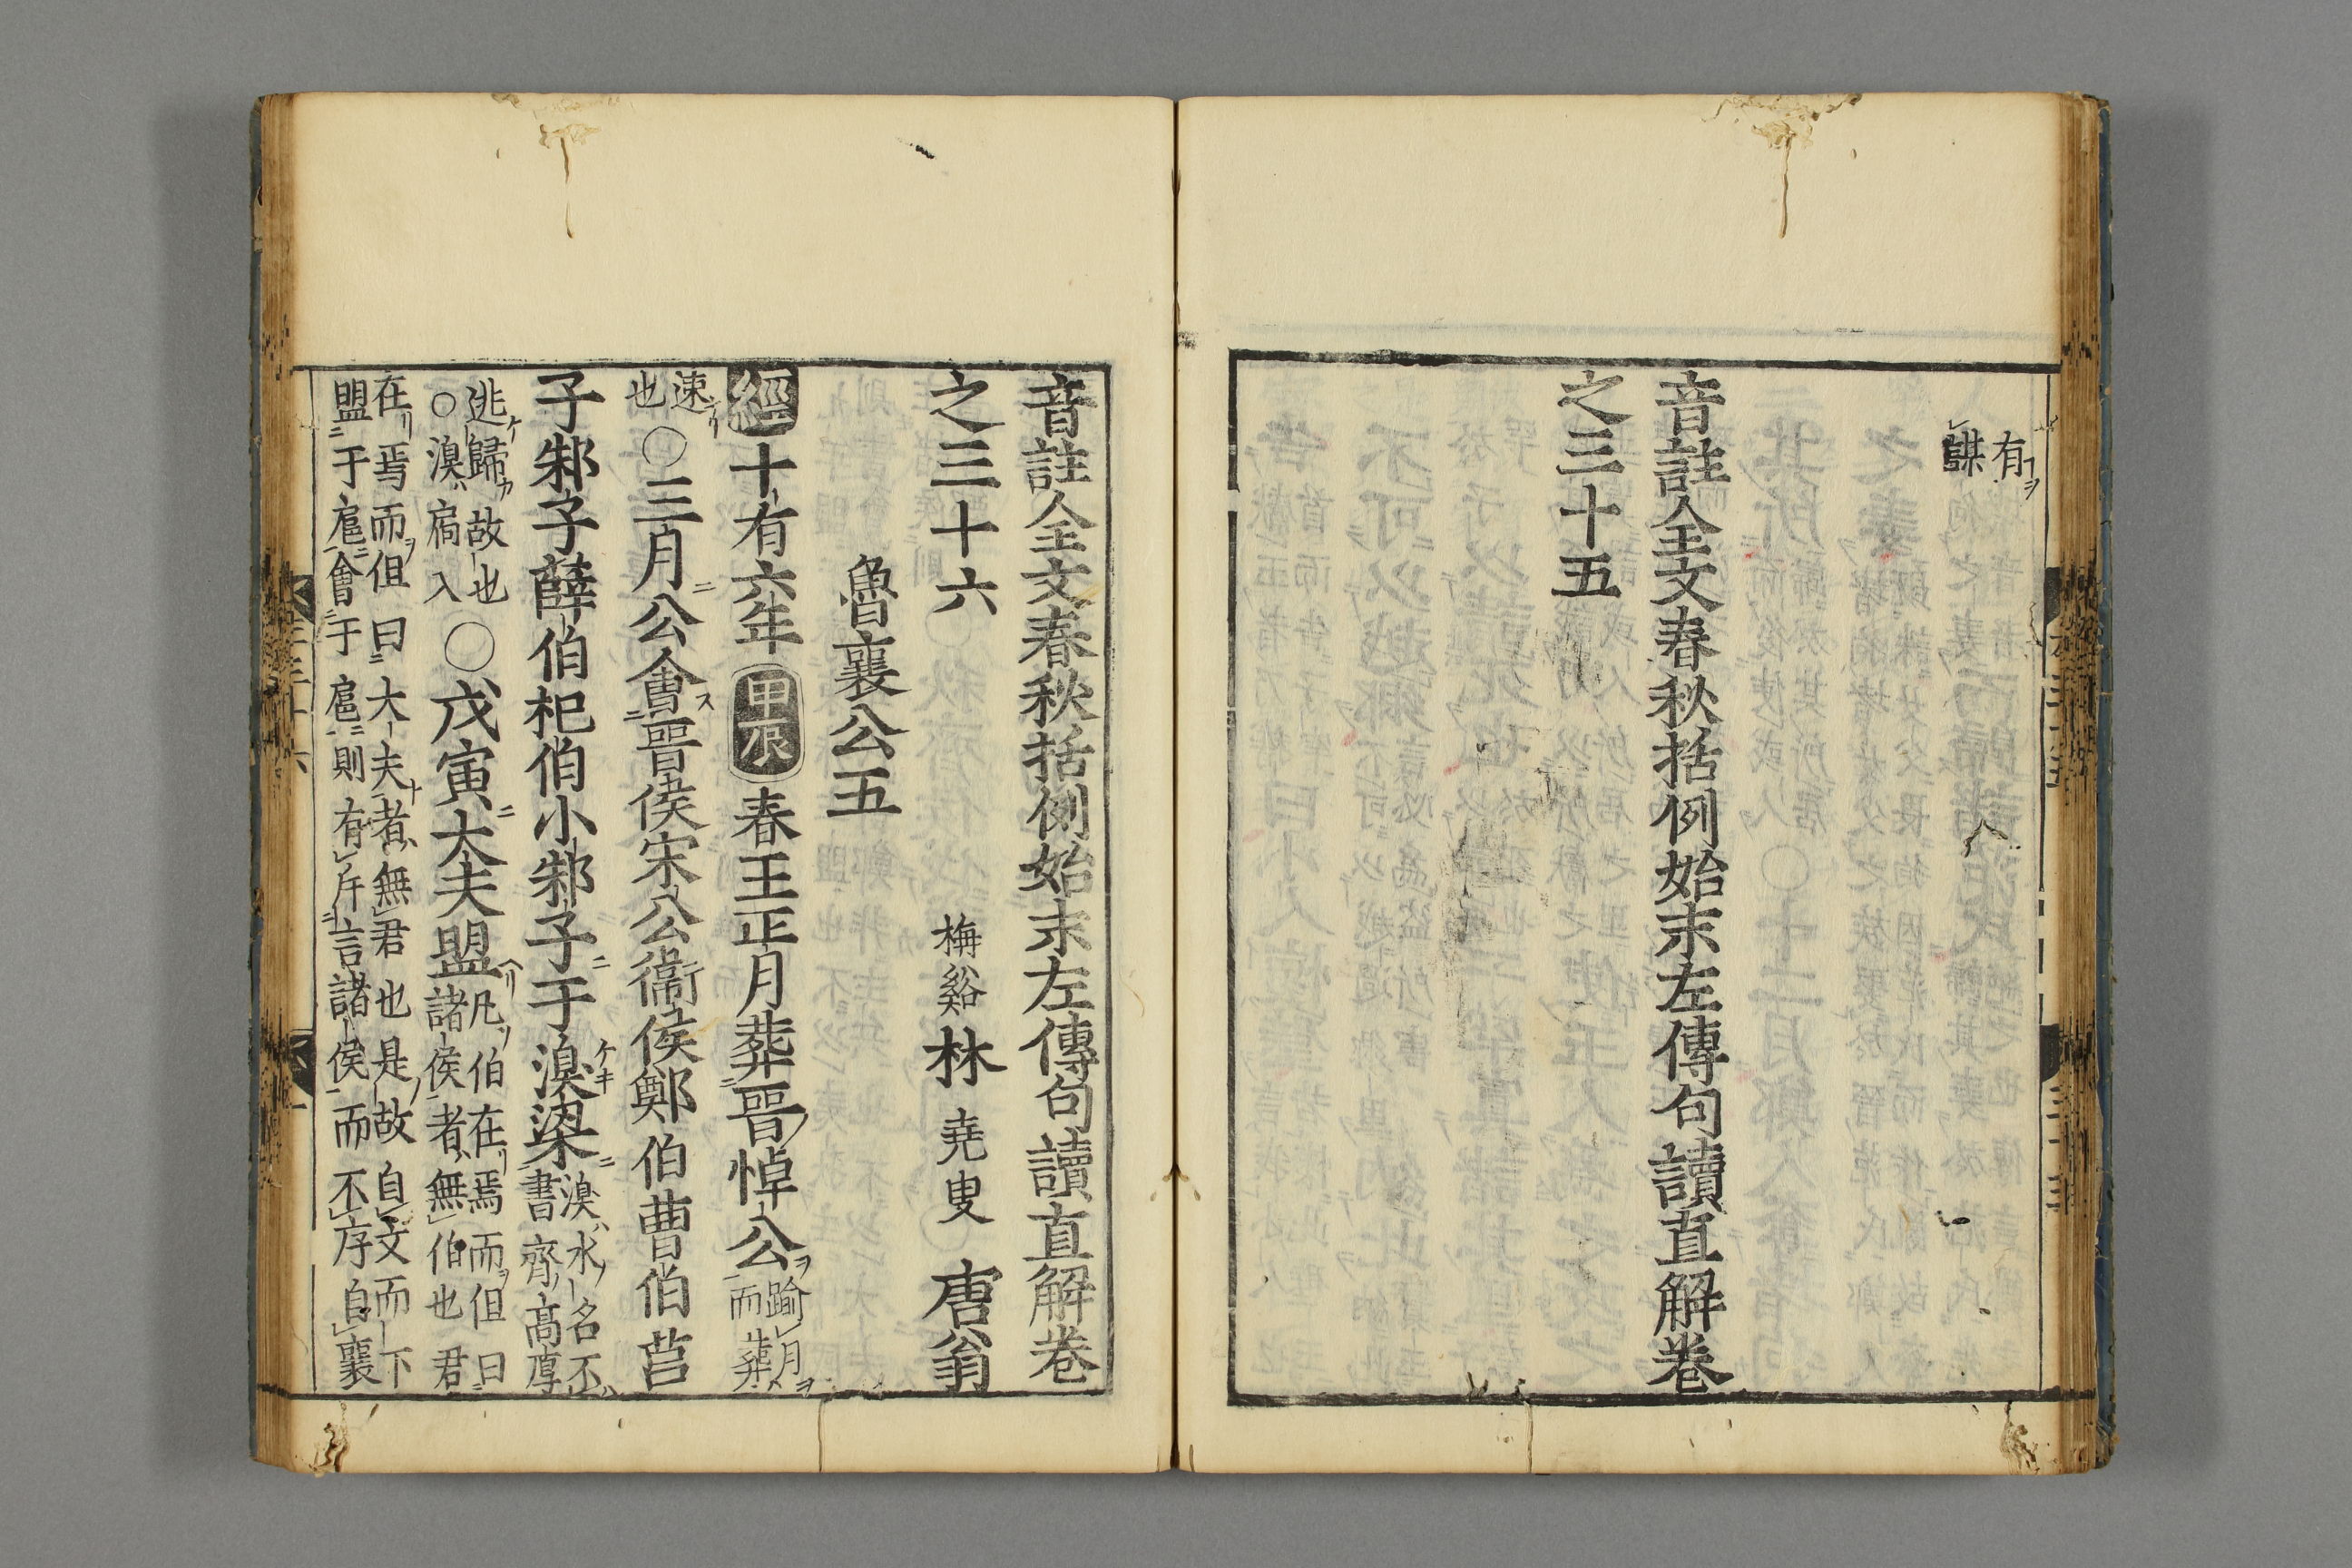 有
謀
音註全文春秋括例始末左傳句讀直解卷
之三十五
音註全文春秋括例始末左傳句讀直解卷
之三十六 梅谿林堯叟唐翁
魯襄公五
經十有六年甲辰春王正月葬晉悼公踰月
而葬
速
也〇三月公會晉侯宋公衞侯鄭伯曹伯莒
子邾子薛伯杞伯小邾子于溴梁溴水名不
書齊高厚
逃歸故也
○溴扃入〇戊寅大夫盟凡伯在焉而但曰
諸侯者無伯也君
在焉而但曰大夫者無君也是故自文而下
盟于扈會于扈則有斥言諸侯而不序自襄